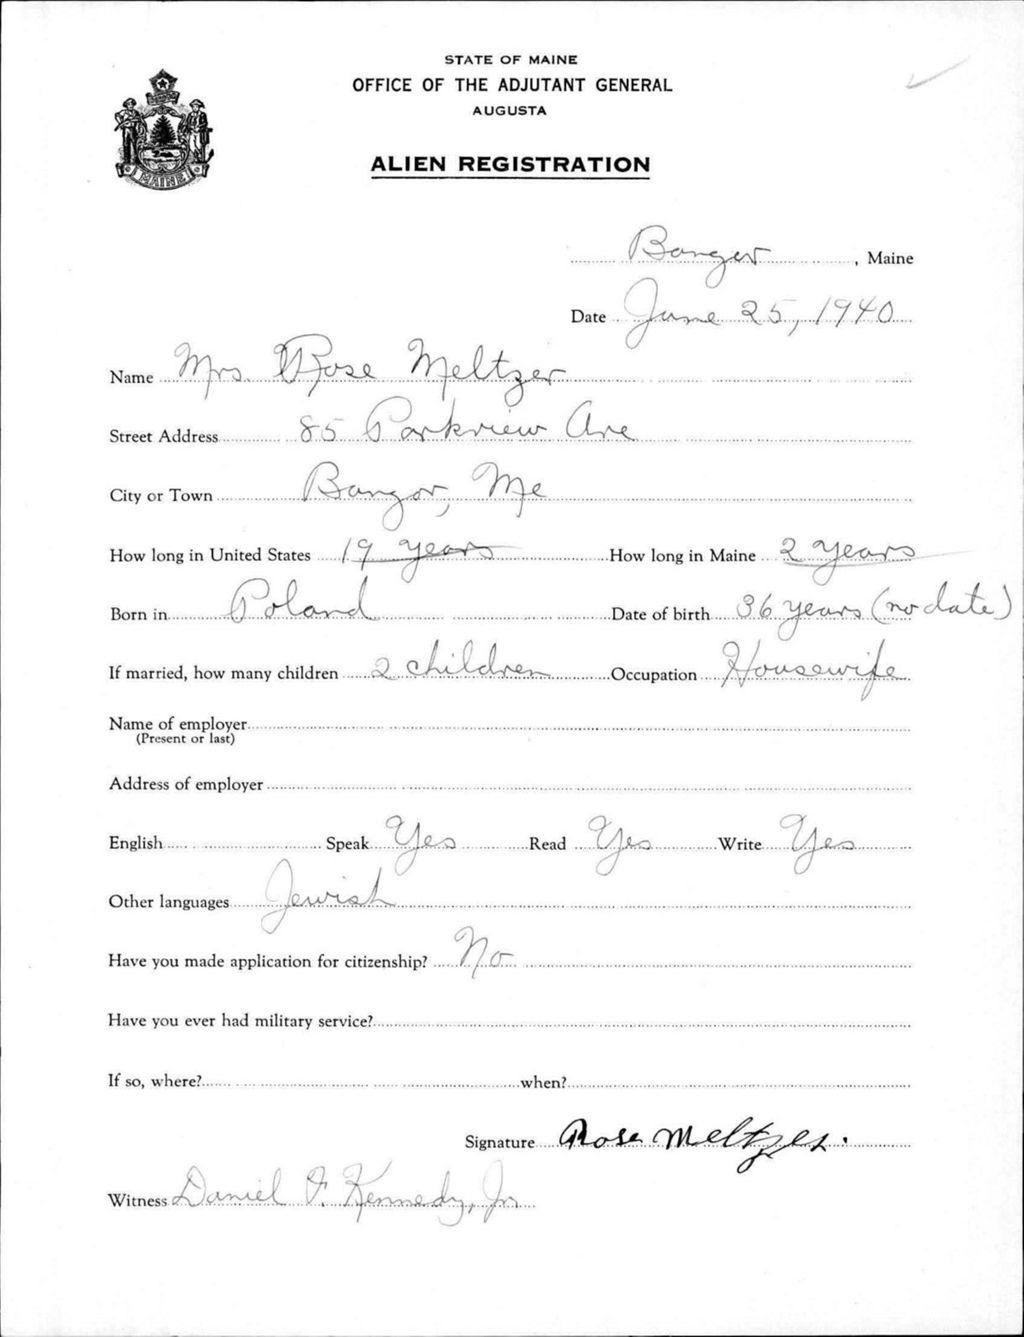 STATE OF MAINE
OFFICE OF THE ADJUTANT GENERAL
AUGUSTA
ALIEN REGISTRATION
MAINE
Bangor, Maine
Date June 25, 1940
Name Mrs. Rose Meltzer
Street Address 85 Parkview Ave
City or Town Bangor, Me
How long in United States 19 years How long in Maine 2 years
Born in Poland Date of birth 36 years (no date)
If married, how many children 2 children Occupation Housewife
Name of employer
(Present or last)
Address of employer
English Speak Yes Read Yes Write Yes
Other languages Jewish
Have you made application for citizenship? No
Have you ever had military service?
If so, where? when?
Signature Rose Meltzer.
Witness Daniel F. Kennedy, Jr.